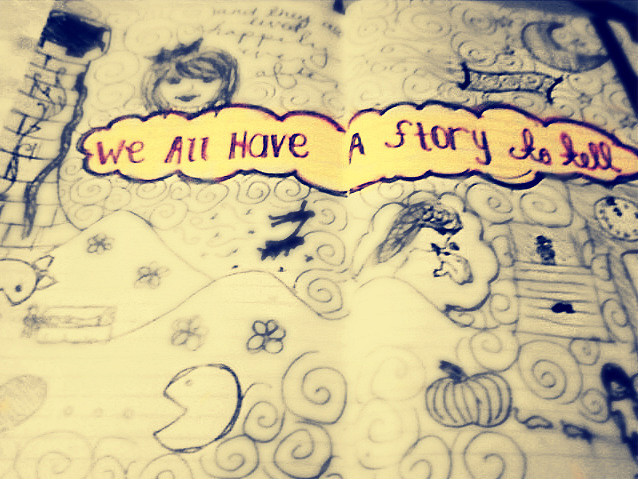 and they all
lived
happily
ever
after
We All Have A Story to tell